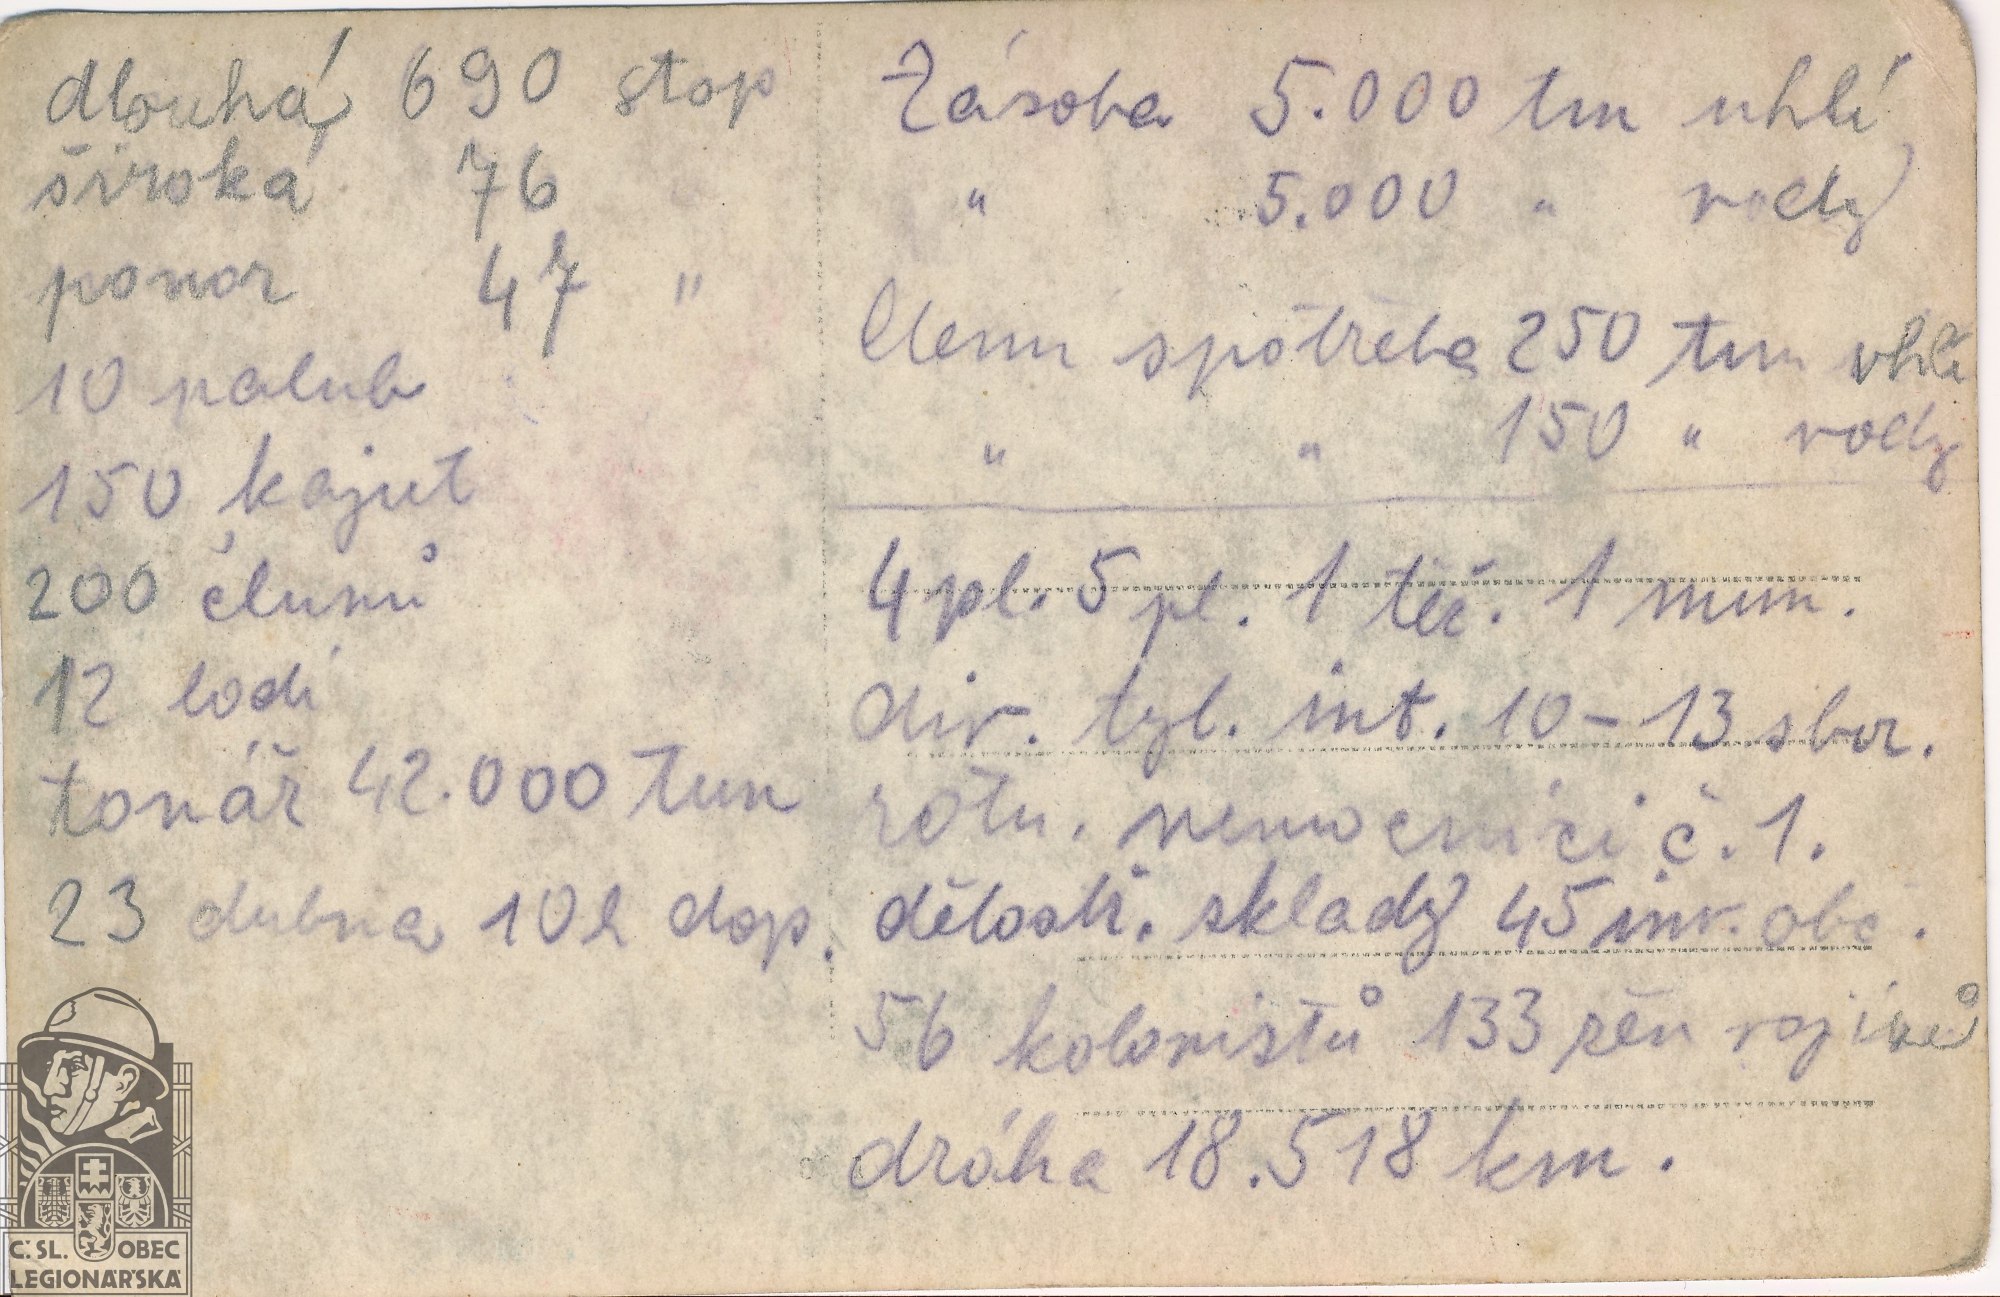 dlouhá 690 stop
široká 76
ponor 47 "
10 palub
150 kajut
200 člunů
12 lodí
tonář 42.000 tun
23 dubna 10 h dop.
Zásoba 5.000 tun uhlí
" 5.000 " vody
denní spotřeba 250 tun uhlí
" " 150 " vody
4 pl. 5 pl. 1 těž. 1 mun.
div. tyl. int. 10-13 sbor.
rotu. nemocnici č. 1.
dělostř. sklady 45 inv. obč.
56 kolonistů 133 žen vojínů
dráha 18.518 km.
Č. SL. OBEC
LEGIONÁŘSKÁ